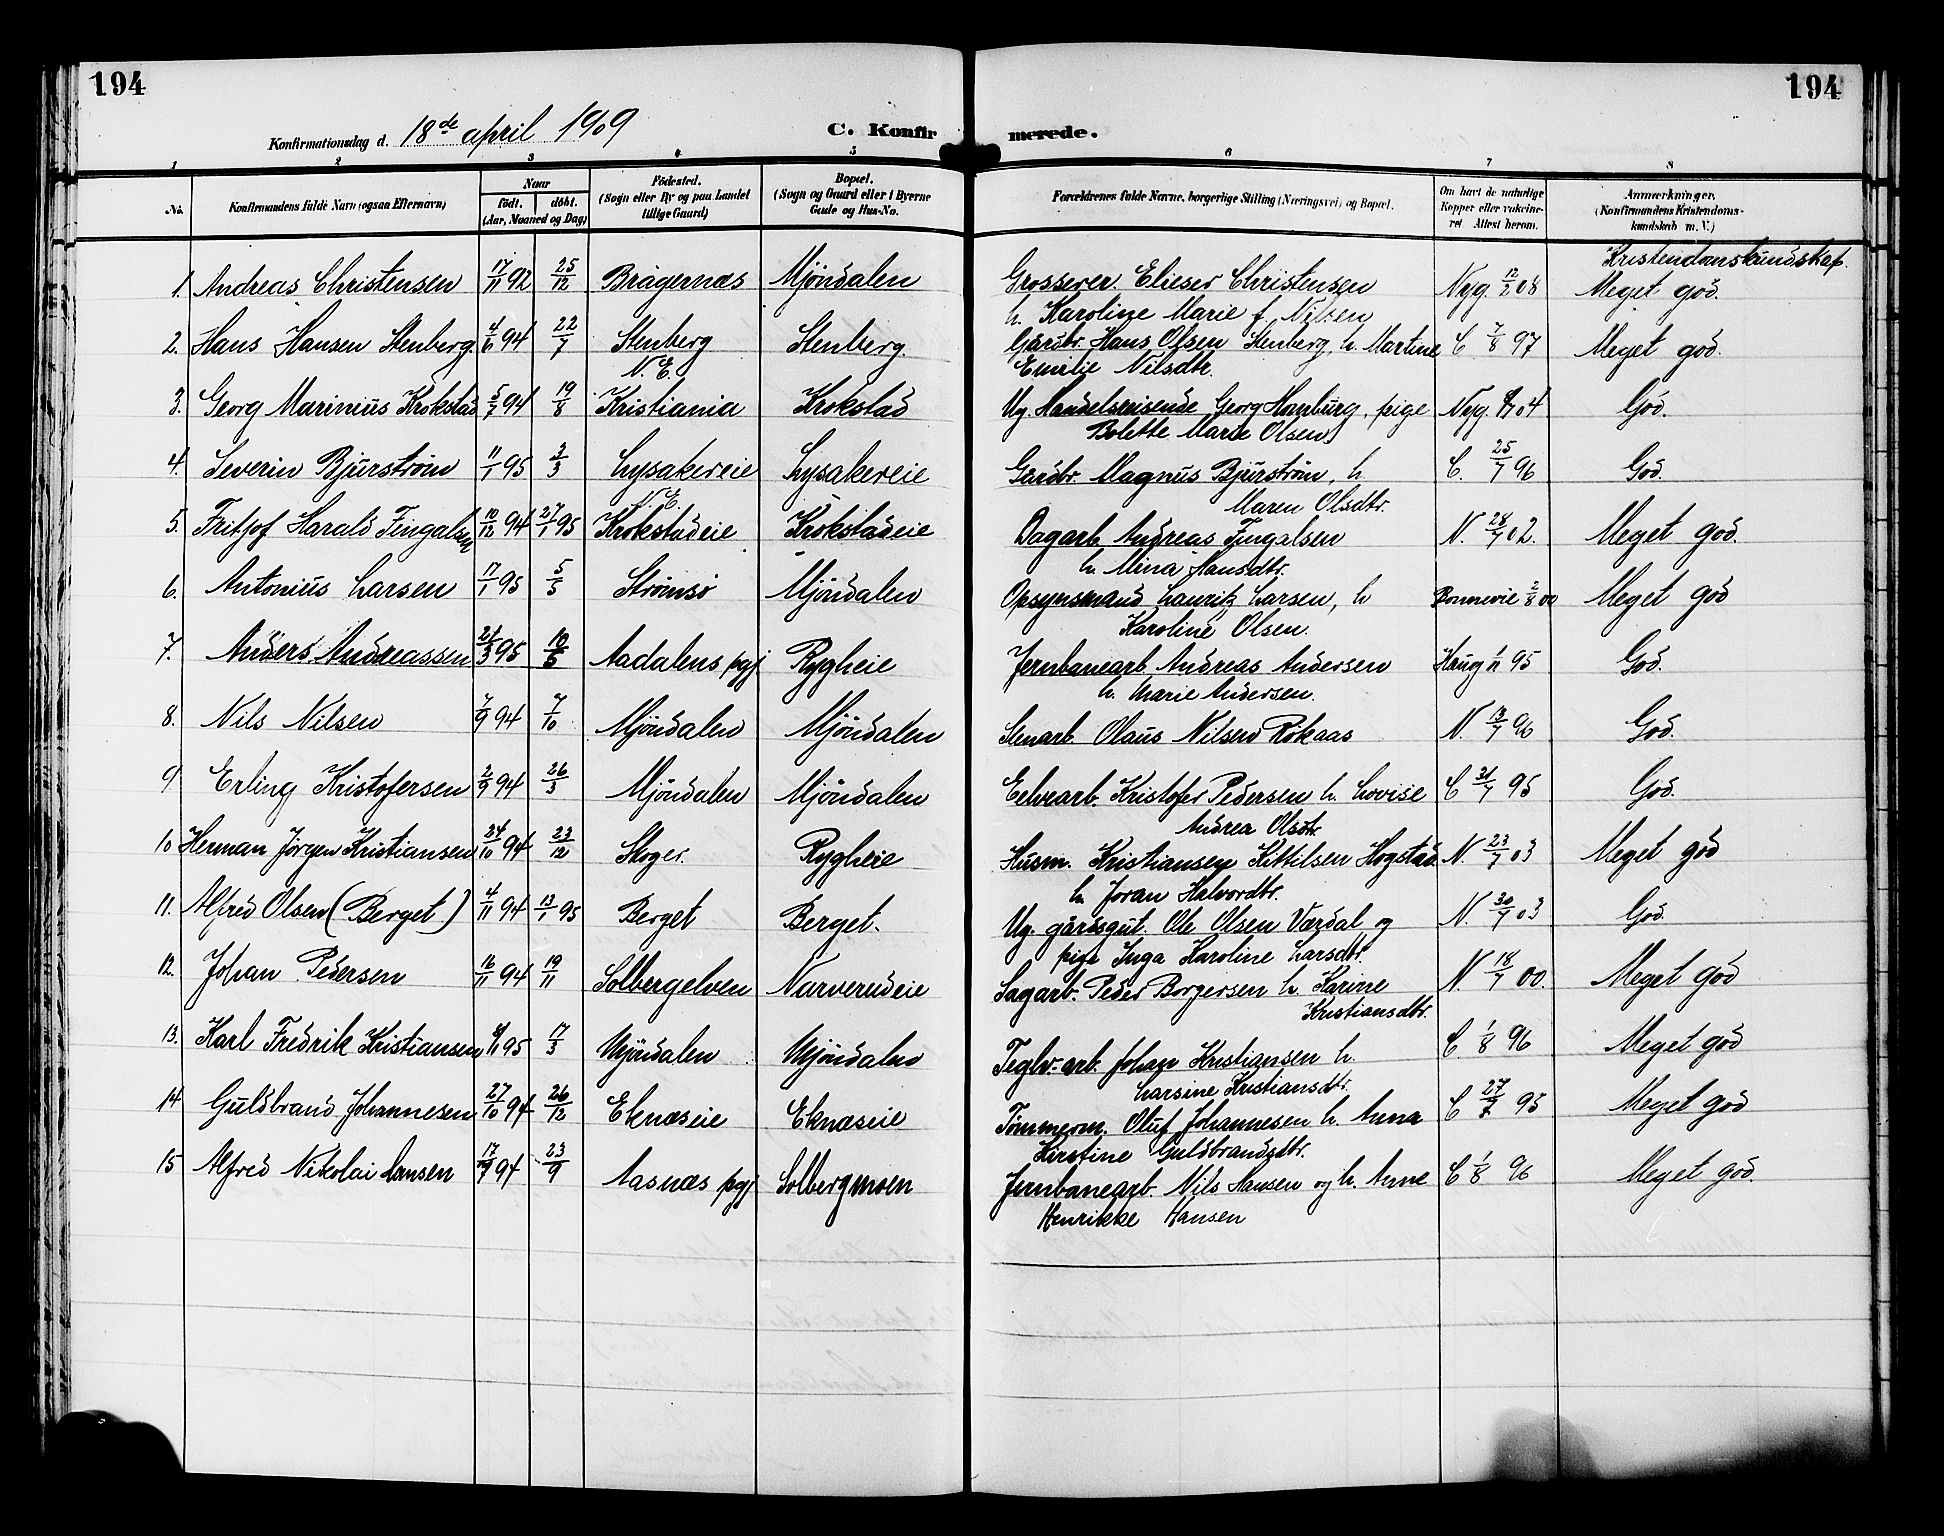 194
194
Konfirmationsdag d. 18de april 1909
C. Konfirmerede.
1 2 3 4 5 6 7 8
No.
Konfirmandens fulde Navn (ogsaa Efternavn)
Naar
født. døbt.
(Aar, Maaned og Dag)
Fødested.
(Sogn eller By og paa Landet
tillige Gaard)
Bopæl.
(Sogn og Gaard eller i Byerne
Gade og Hus-No.
Forældrenes fulde Navne, borgerlige Stilling (Næringsvei) og Bopæl.
Om havt de naturlige
Kopper eller vakcine-
ret Attest herom.
Anmærkninger,
(Konfirmandens Kristendoms-
kundskab m. V.)
Kristendomskundskap.
1. Andreas Christensen 17/11 92 25/12 Bragernæs Mjöndalen Grosserer Elieser Christensen Nyg. 12/2 08 Meget god.
h. Karoline Marie f. Nilsen
2. Hans Hansen Stenberg. 4/6 94 22/7 Stenberg Stenberg. Gårdbr. Hans Olsen Stenberg, h. Martine C 7/8 97 Meget god.
N. E. Emilie Nilsdtr.
3. Georg Marinius Krokstad 5/7 94 19/8 Kristiania Krokstad Ug. Handelsreisende Georg Homburg, pige Nyg. 04 God.
Bolette Marie Olsen
4. Severin Bjurström 11/1 95 3/3 Lysakereie Lysakereie Gårdbr. Magnus Bjurström, h C. 25/7 96 God.
N. E. Maren Olsdtr.
5. Fritjof Harald Fingalsen 10/12 94 27/1 95 Krokstadeie Krokstadeie Dagarb. Andreas Fingalsen N. 28/7 02. Meget god.
h. Mina Hansdtr.
6. Antonius Larsen 17/1 95 5/5 Strömsö Mjöndalen Opsynsmand Lauritz Larsen, h Bonnevie 2/8 00 Meget god
Karoline Olsen.
7. Anders Andreassen 24/3 95 10/5 Aadalens pgj Rygheie Jernbanearb. Andreas Andersen Haug 1/11 95 God.
h. Marie Andersen.
8. Nils Nilsen 7/9 94 7/10 Mjöndalen Mjöndalen Stenarb. Olaus Nilsen Rokaas N. 13/7 96 God.
9 Erling Kristofersen 2/9 94 26/3 Mjöndalen Mjöndalen Elvearb. Kristofer Pedersen h. Lovise C 31/7 95 God.
Andrea Olsdtr.
10 Herman Jörgen Kristiansen 24/10 94 23/12 Skoger. Rygheie Husm. Kristiansen Kittilsen Hogstad N. 23/7 03 Meget god
h. Joran Halvordtr.
11. Alfred Olsen (Berget) 4/11 94 13/1 95 Berget Berget. Ug. gårdsgut. Ole Olsen Værdal og N. 30/7 03 God.
pige Inga Karoline Larsdtr.
12. Johan Pedersen 16/11 94 19/11 Solbergelven Narverudeie Sagarb. Peder Borgersen h. Karine N. 18/7 00. Meget god
Kristiansdtr.
13. Karl Fredrik Kristiansen 95 17/3 Mjöndalen Mjöndalen Teglv.-arb. Johan Kristiansen h. C. 1/8 96 Meget god
Larsine Kristiansdtr.
14 Guldbrand Johannesen 27/10 94 26/12 Eknæseie Eknæseie Tömmerm. Oluf Johannesen h. Anna C 27/7 95 Meget god
Kirstine Guldbrandsdtr.
15 Alfred Nikolai Hansen 17/9 94 23/9 Aasnæs pgj Solbergmoen Jernbanearb. Nils Hansen og h. Anne C 1/8 96 Meget god.
Henrikke Hansen